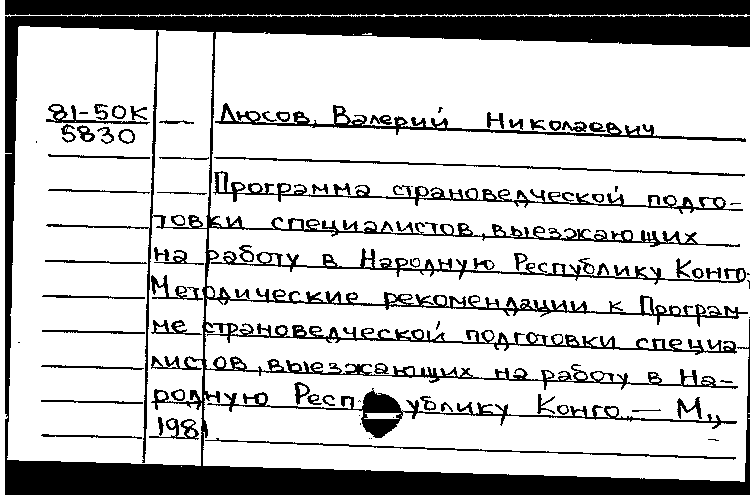 81-50К
5830
Люсов, Валерий Николаевич
Программа страноведческой подго-
товки специалистов, выезжающих
на работу в Народную Республику Конго;
Методические рекомендации к Програм-
ме страноведческой подготовки специа-
листов, выезжающих на работу в На-
родную Республику Конго.– М.,
1981